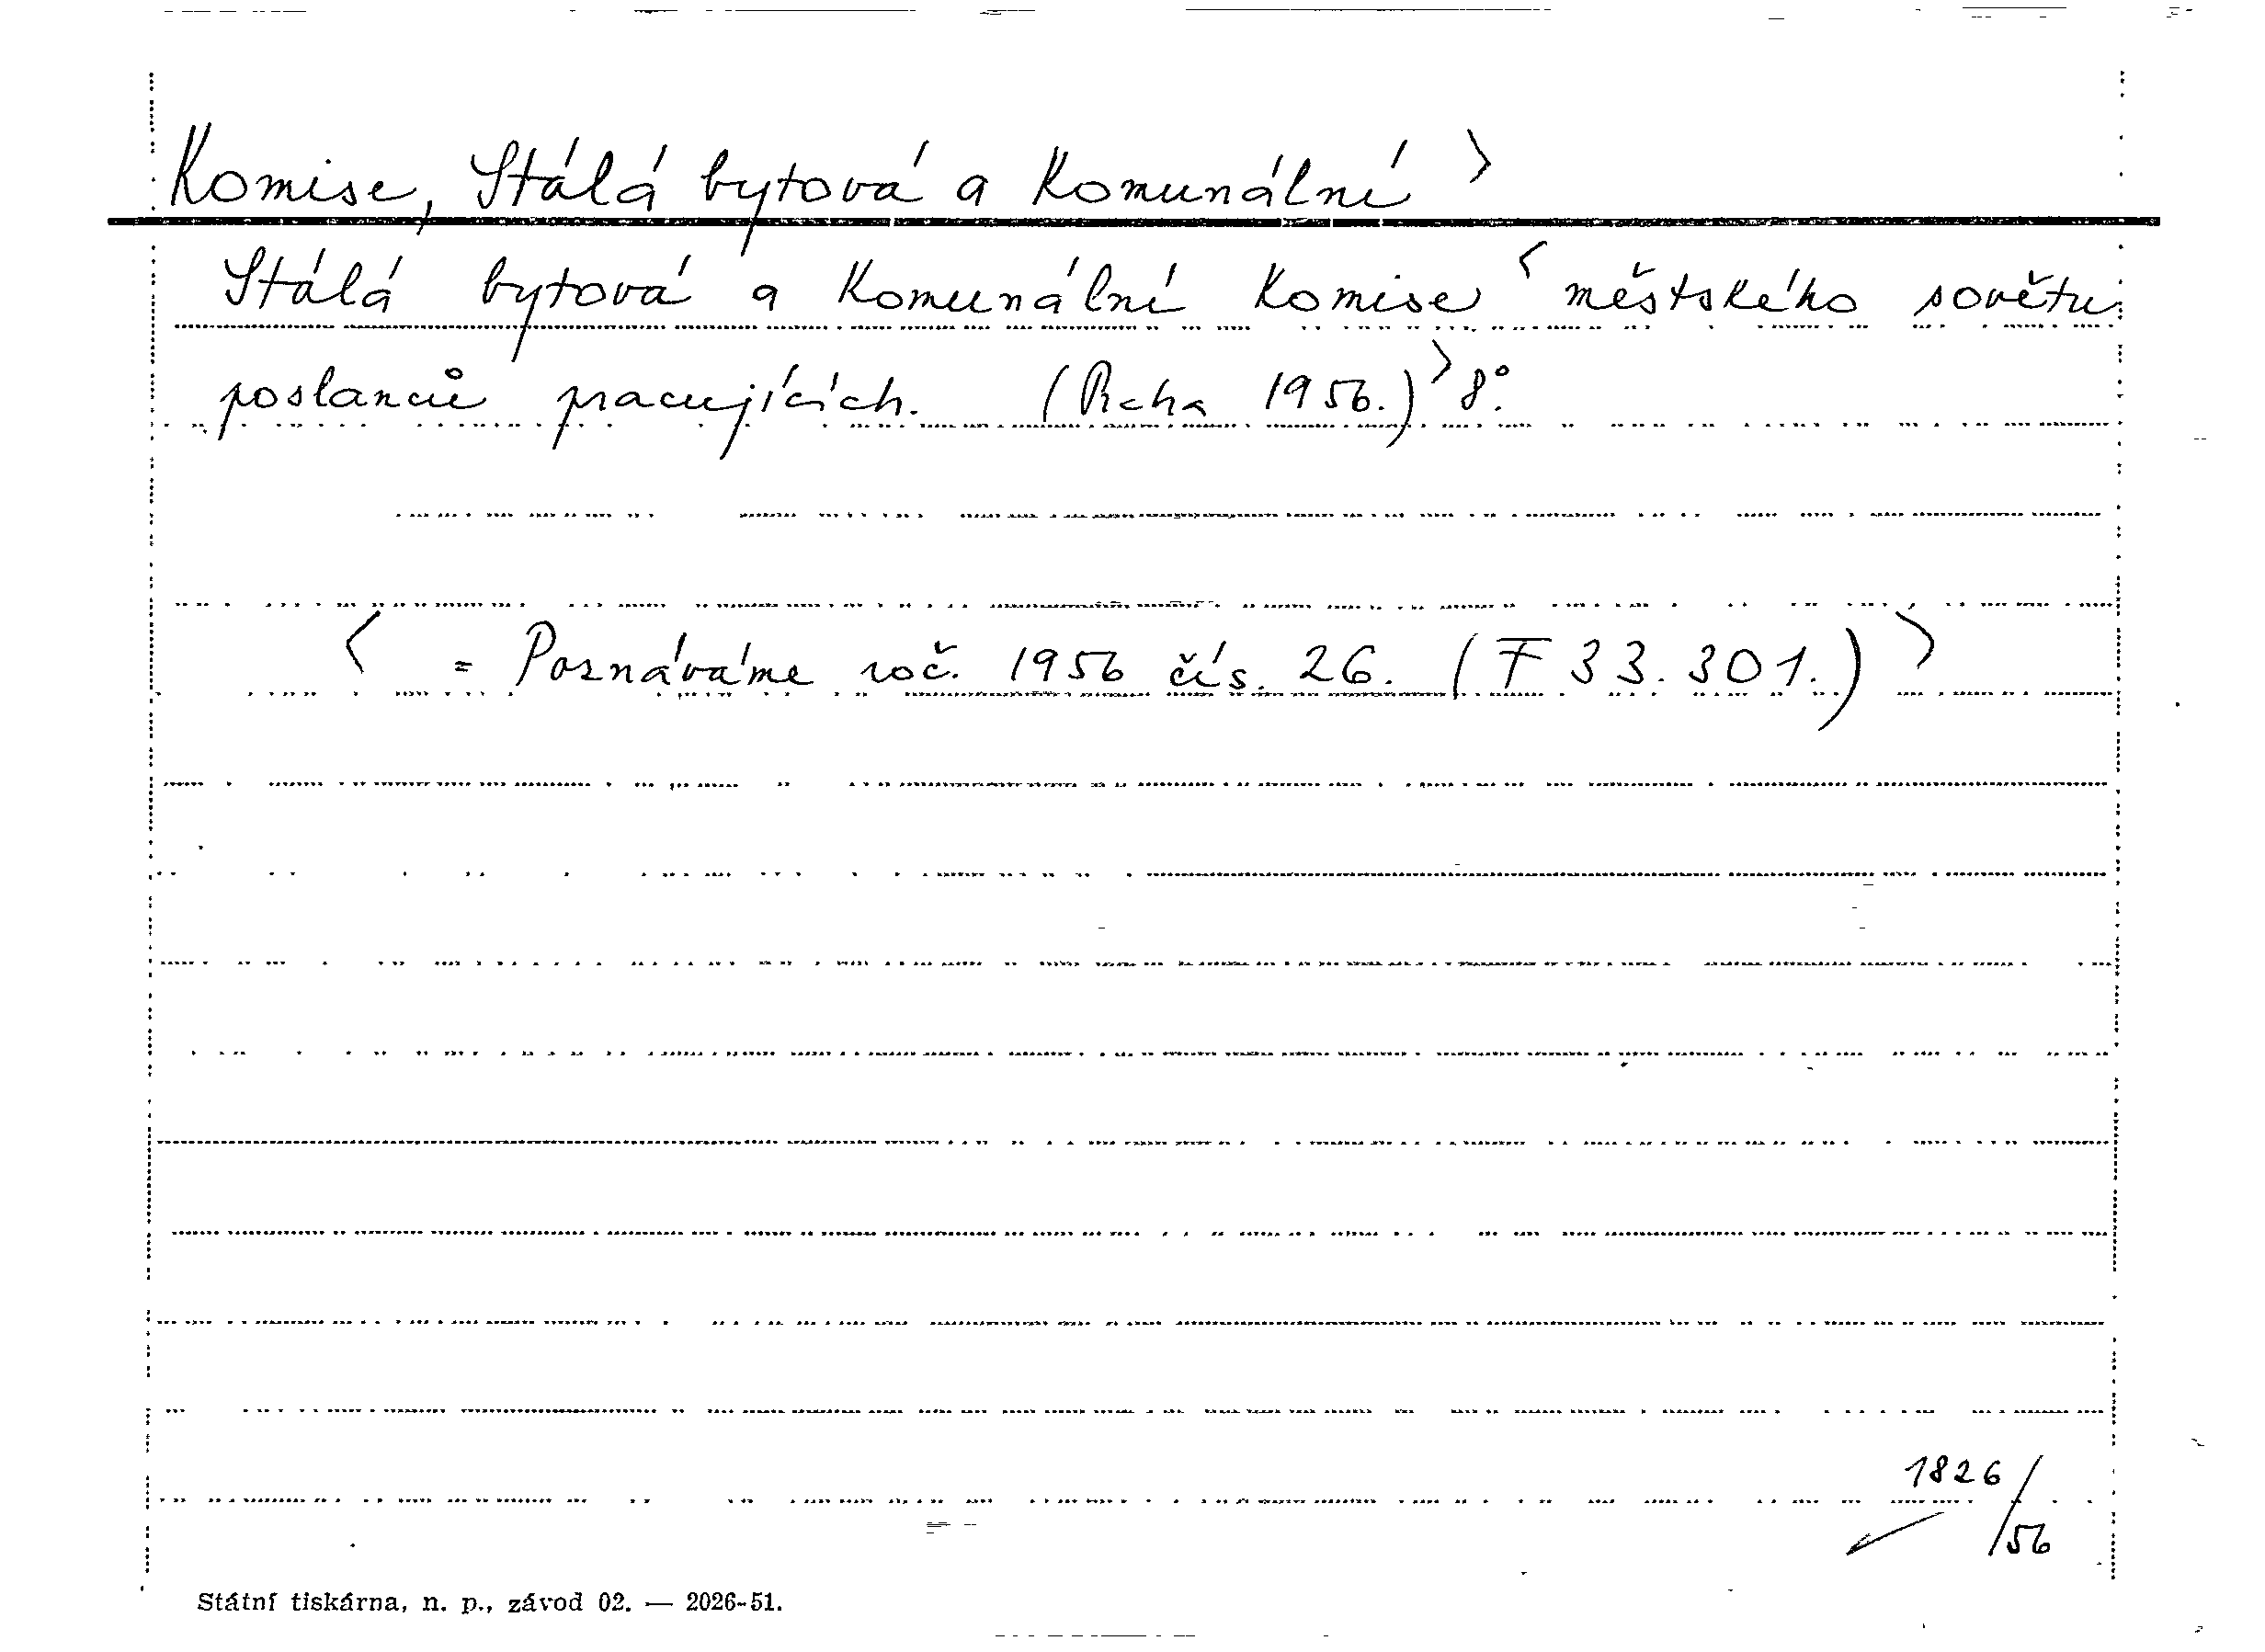 Komise, Stálá bytová a komunální >
Stálá bytová a komunální komise < městského sovětu
poslanců pracujících. (Praha 1956.) > 8°.
< = Poznáváme roč. 1956 čís. 26. (F 33.301.) >
1826/56
Státní tiskárna, n. p., závod 02. — 2026-51.